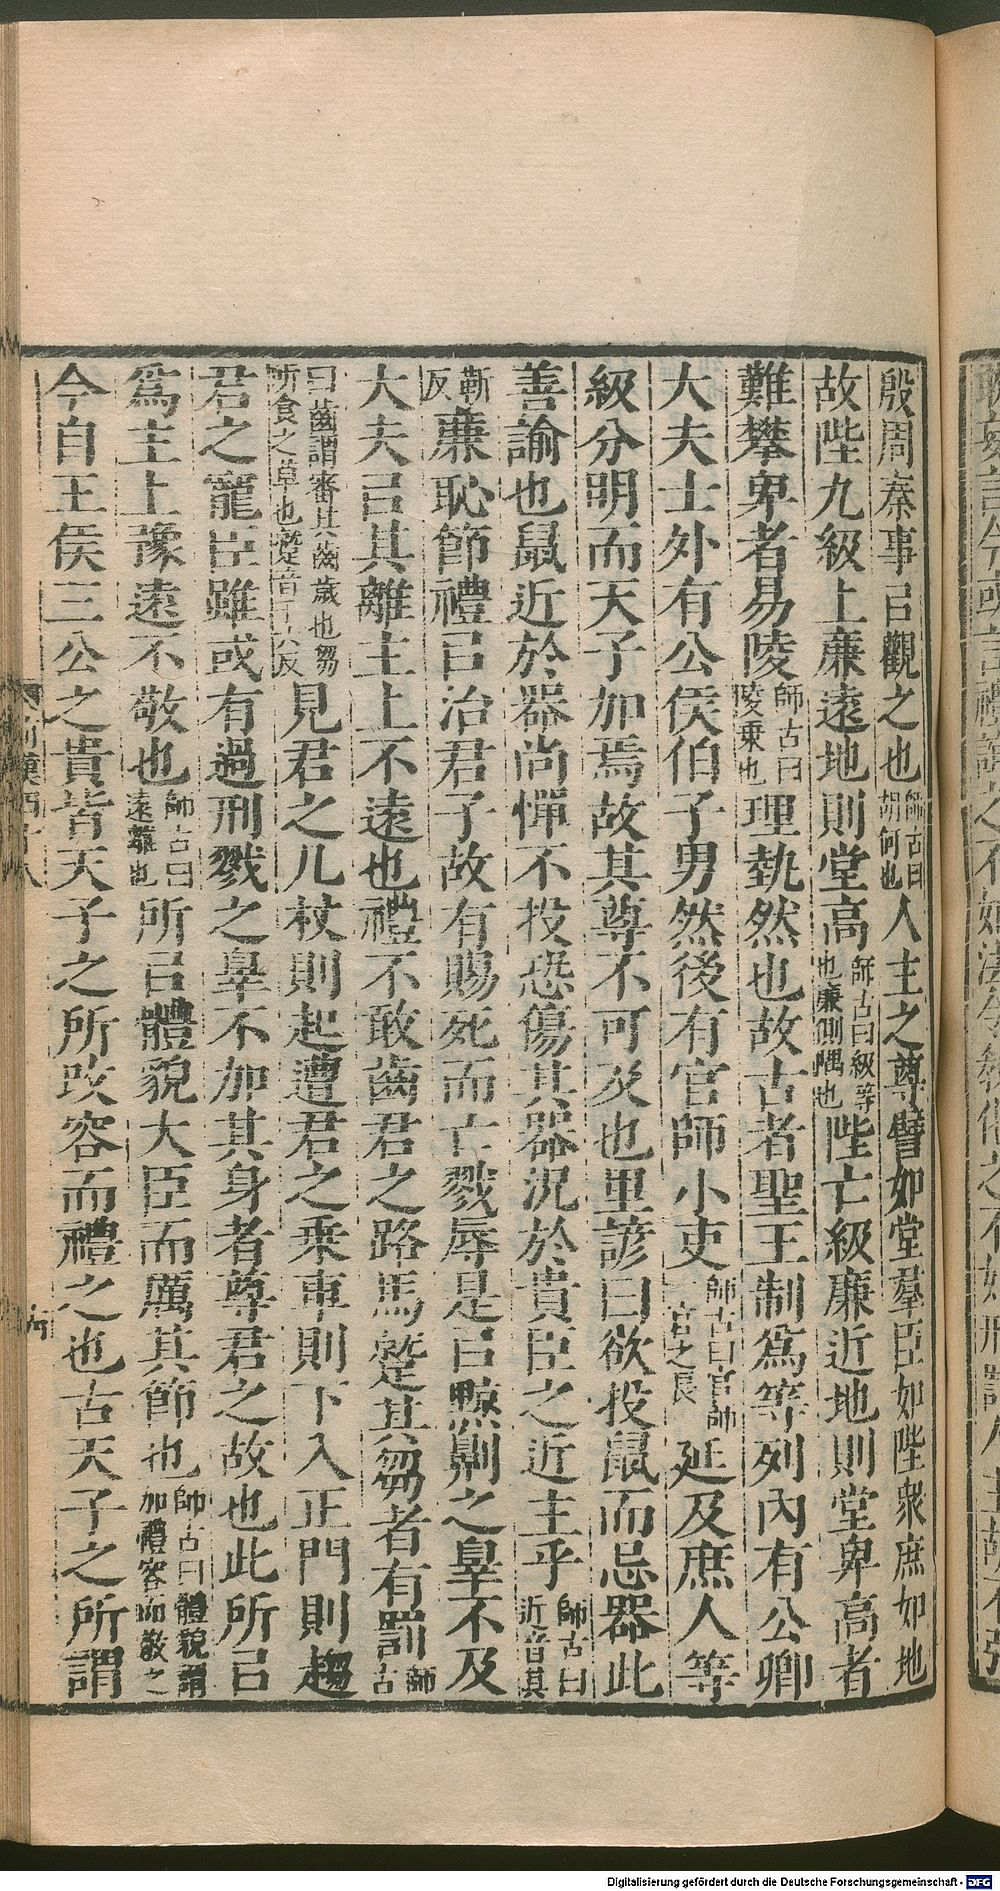 殷周秦事㠯觀之也師古曰胡何也人主之尊譬如堂羣臣如陛衆庶如地
故陛九級上廉遠地則堂高師古曰級等也廉側隅也陛亡級廉近地則堂卑高者
難攀卑者易陵師古曰陵乘也理埶然也故古者聖王制爲等列內有公卿
大夫士外有公侯伯子男然後有官師小吏師古曰官師一官之長延及庶人等
級分明而天子加焉故其尊不可及也里諺曰欲投鼠而忌器此
善諭也鼠近於器尚憚不投恐傷其器況於貴臣之近主乎師古曰近音其
靳反廉恥節禮㠯治君子故有賜死而亡戮辱是㠯黥劓之辠不及
大夫㠯其離主上不遠也禮不敢齒君之路馬蹵其芻者有罰師古
曰齒謂審其齒歲也芻所食之草也蹵音千六反見君之几杖則起遭君之乘車則下入正門則趨
君之寵臣雖或有過刑戮之辠不加其身者尊君之故也此所㠯
爲主上豫遠不敬也師古曰遠離也所㠯體貌大臣而厲其節也師古曰體貌謂加禮容而敬之
今自王侯三公之貴皆天子之所改容而禮之也古天子之所謂
Digitalisierung gefördert durch die Deutsche Forschungsgemeinschaft - DFG